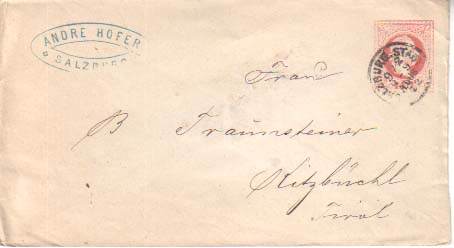 ANDRE HOFER
SALZBURG
SALZBURG-STADT
Frau
B Traunsteiner
Kitzbüchl
Tirol